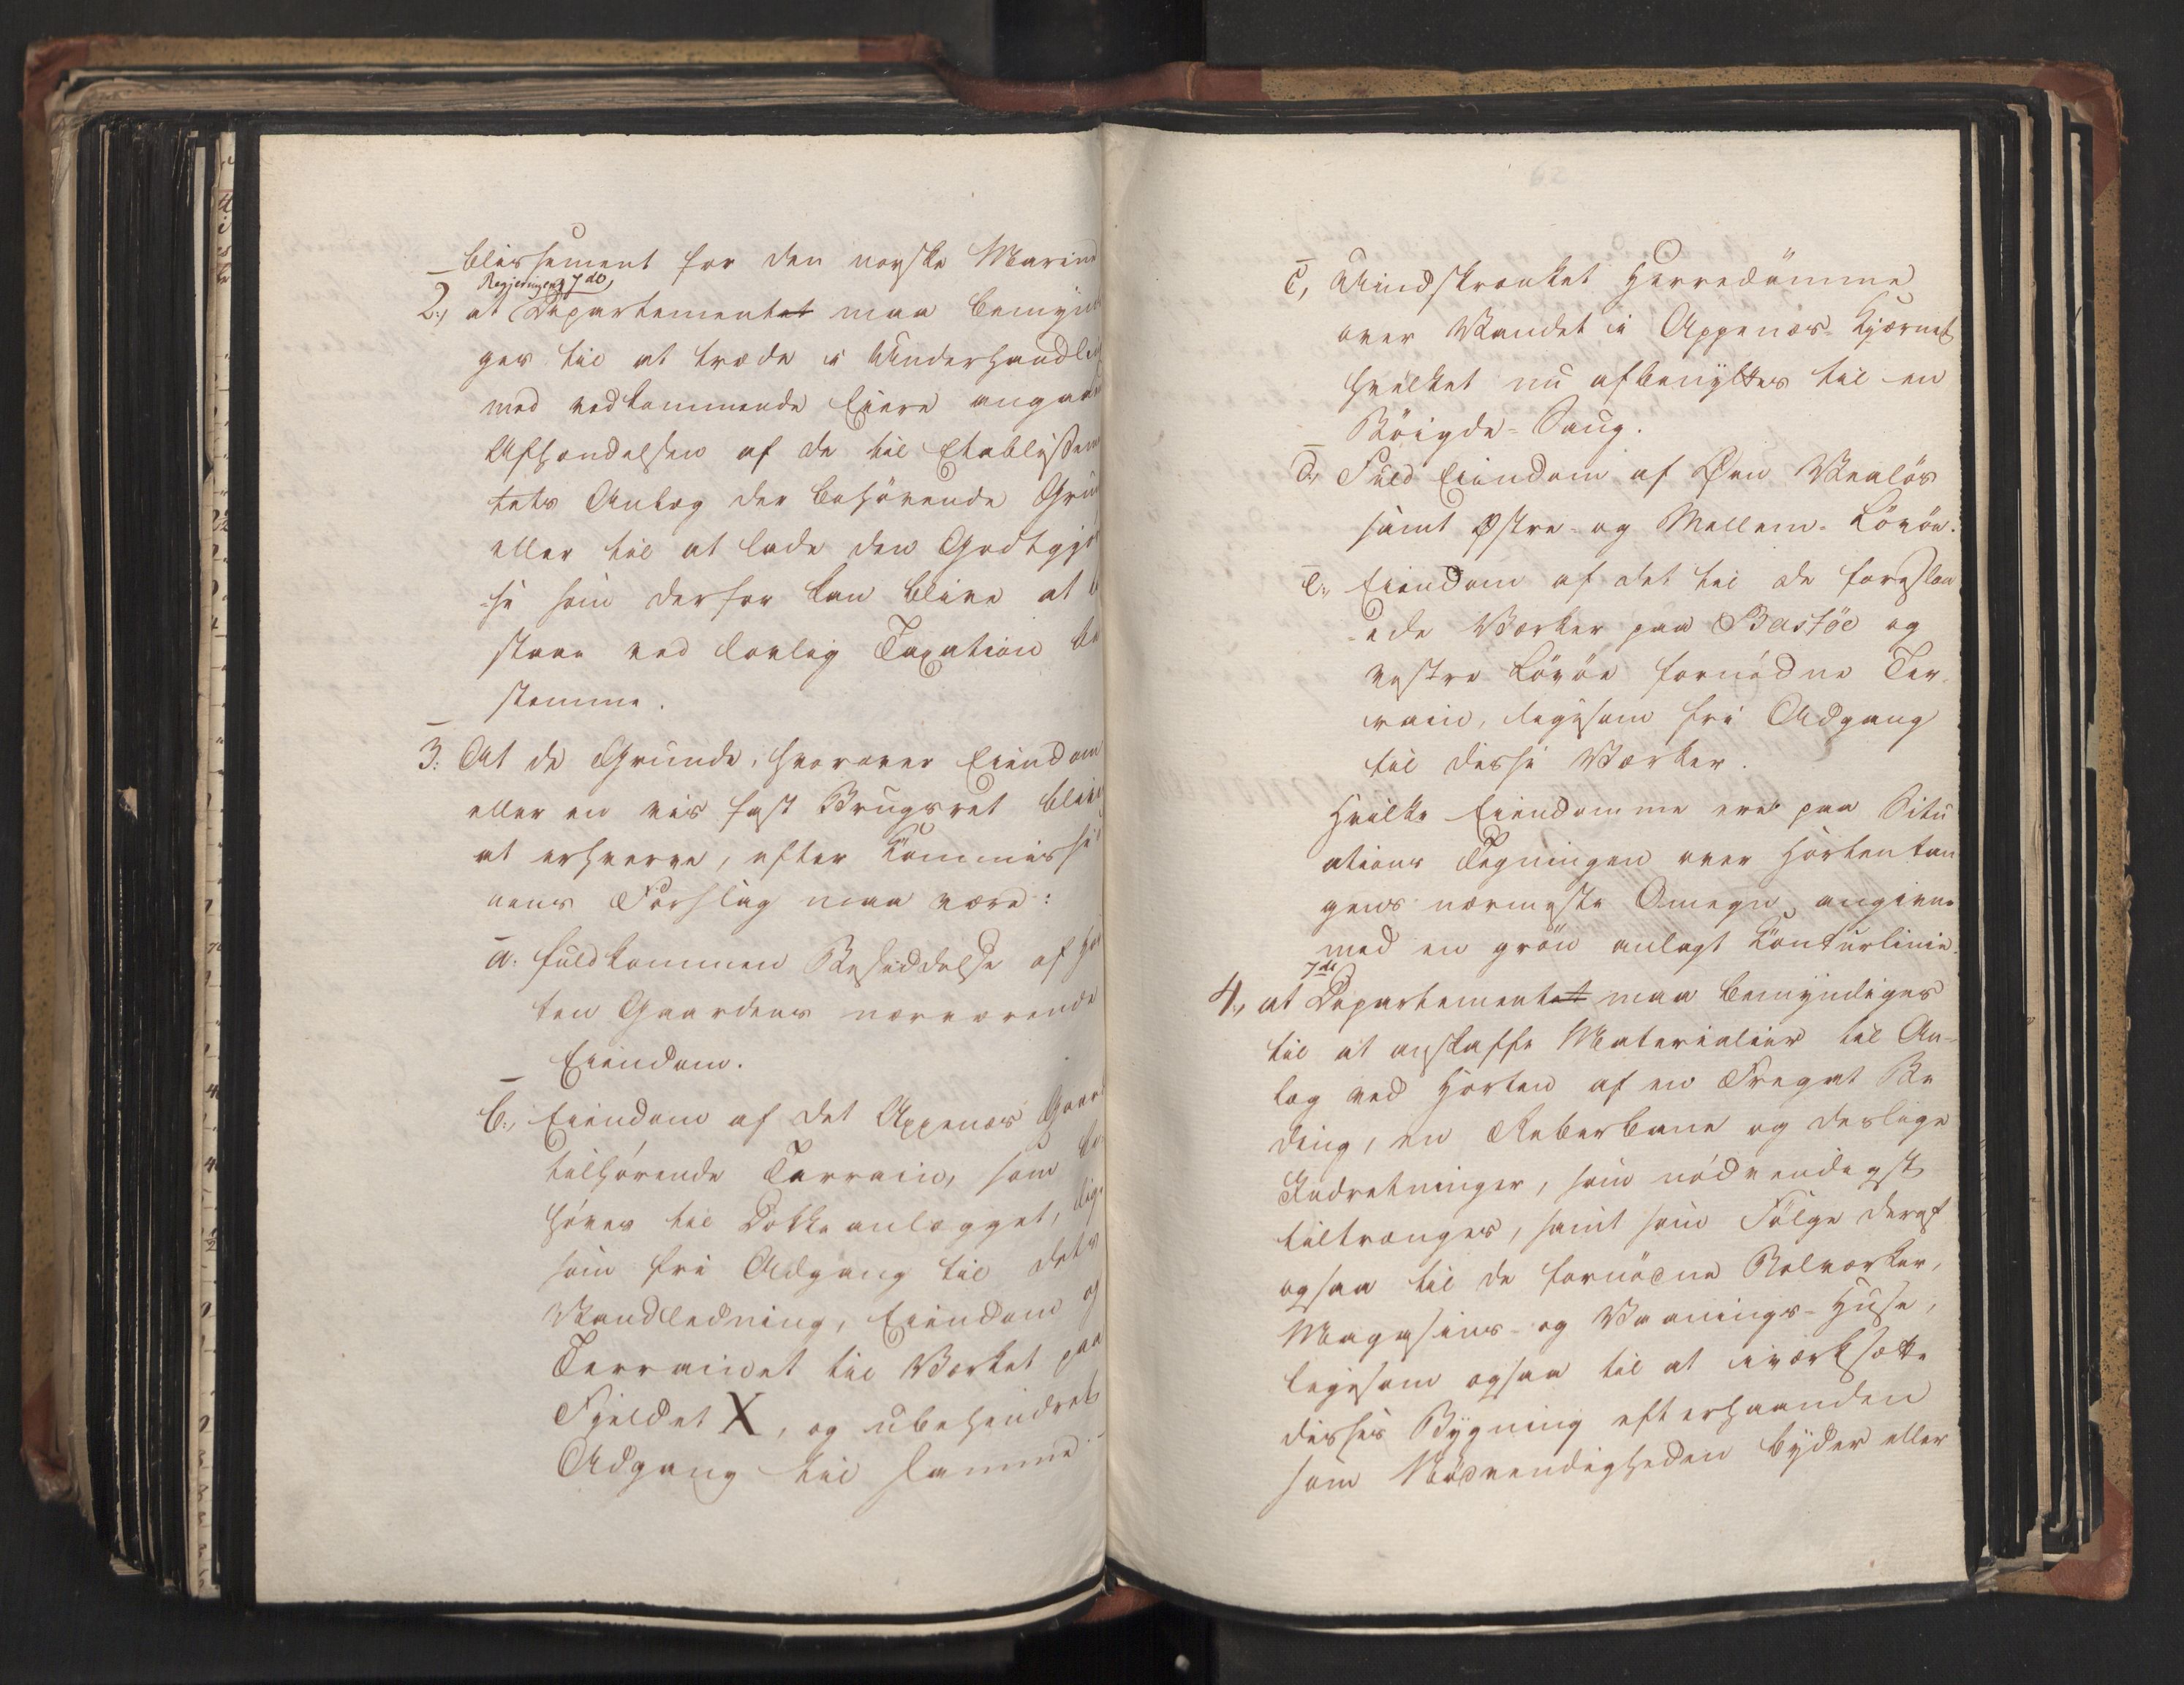 blissement for den norske Marine
Regjeringens 7de
2., at Departementet maa bemyn
ges til at træde i Underhandli
med vedkommende Eiere angaa
Afhændelsen af de til Etablissem
tets Anlæg der behövende Gru
eller til at lade den Godtgjö
se som derfor kan blive at
staae ved lovlig Taxation be
stemme.
3. At de Grunde, hvorover Eiendom
eller en vis fast Brugsret blive
at erhverve, efter Kommissi
nens Forslag maa være:
a. fuldkommen Besiddelse af Hor
ten Gaardens nærværende
Eiendom.
b., Eiendom af det Appenæs Gaar
tilhörende Terrain, som be
höves til Dokkeanlægget, lige
som fri Adgang til dets
Vandledning, Eiendom og
Terrainet til Værket paa
Fjeldet X, og ubehindret
Adgang til samme
62
c, Uindskrænket Herredömme
over Vandet i Appenæs-Kjærnet
hvilket nu afbenyttes til en
Böigde-Saug.
d., Fuld Eiendom af Øen Vealös
samt Østre- og Mellem-Lövöe.
e., Eiendom af det til de foreslaa
ede Værker paa Bastöe og
vestre Lövöe fornödne Ter-
rain, ligesom fri Adgang
til disse Værker.
Hvilke Eiendomme ere paa Situ
ations Tegningen over Hortentan
gens nærmeste Omegn angivne
med en grön anlagt Konturlinie.
7de
4., at Departementet maa bemyndiges
til at anskaffe Materialier til An-
læg ved Horten af en Fregat Be
ding, en Reberbane og deslige
Indretninger, som nödvendigst
tiltrænges, samt som Fölge deraf
ogsaa til de fornödne Bolværker,
Magasins- og Vaanings-Huse,
ligesom ogsaa til at iværksætte
disses Bygning efterhaanden
som Nödvendigheden byder eller